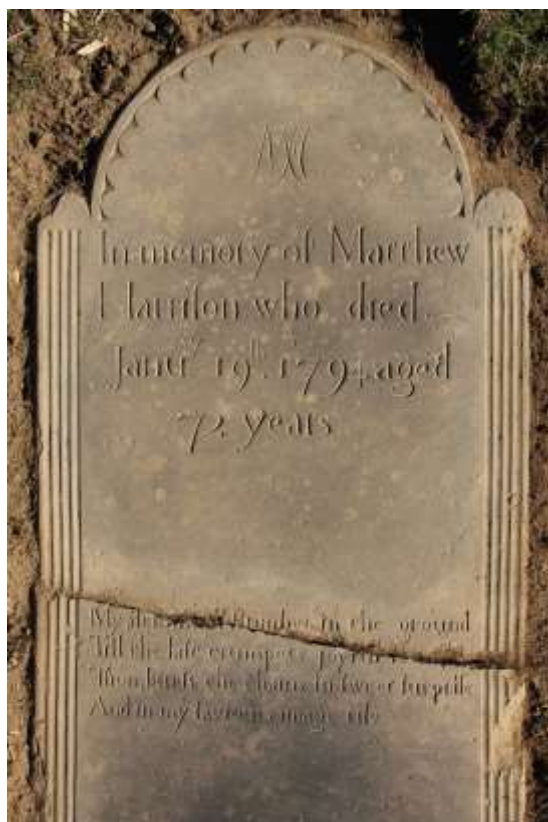 In memory of Matthew
Harriſon who died
Janu.ʸ 19ᵗʰ. 1794. aged
72 years
My ſleſh ſlumber in the ground
Till the laſt trumpets joyful
Then burſt the chains in ſweet ſurpriſe
And in my ſaviours image riſe